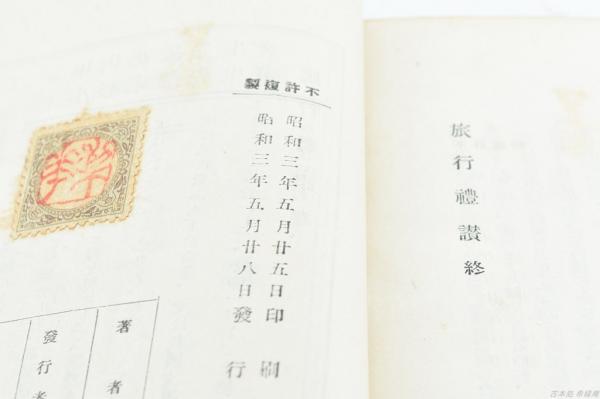 旅行禮讃終
不許複製
昭和三年五月廿五日印刷
昭和三年五月廿八日發行
著者
發行者